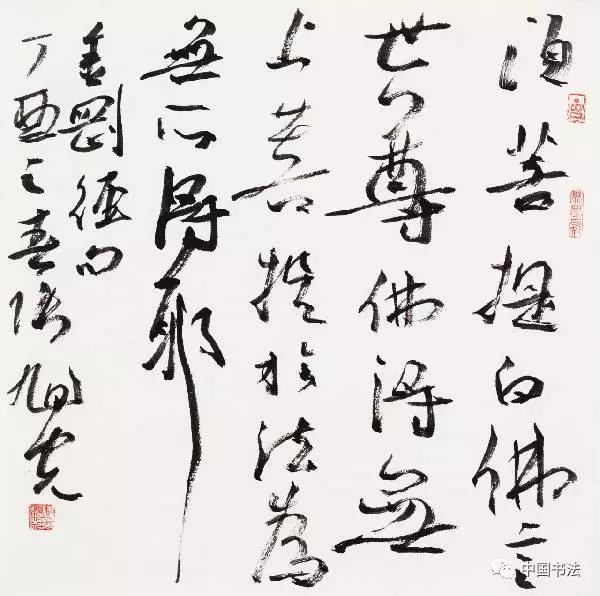 須菩提白佛言
世尊佛得無
上菩提於法為
無所得耶
金剛經句
丁酉之春張旭光
中国书法